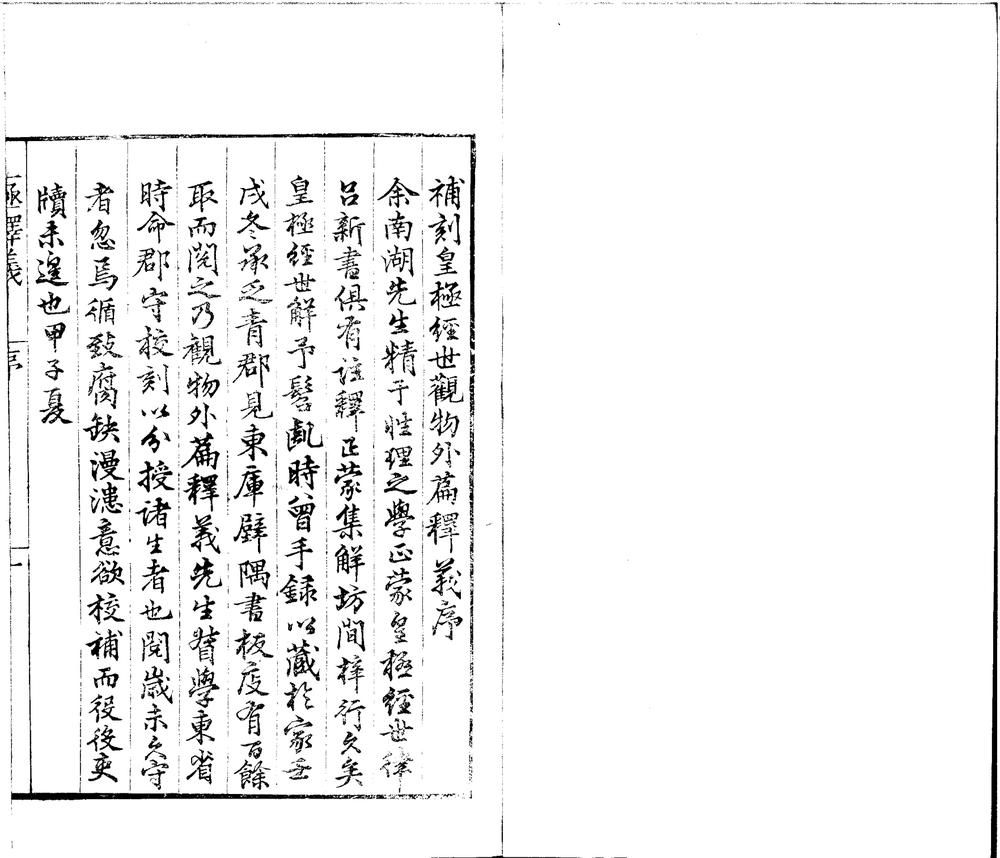 補刻皇極經世觀物外篇釋義序
余南湖先生精于性理之學正蒙皇極經世律
呂新書俱有註釋正蒙集解坊間梓行久矣
皇極經世解予髫齓時曾手録以藏於家壬
戌冬承乏青郡見東庫壁隅書板庋有百餘
取而閱之乃觀物外篇釋義先生督學東省
時命郡守校刻以分授諸生者也閱歲未久守
者忽焉循致腐缺漫漶意欲校補而役役奕
牘未遑也甲子夏
極釋義
序
一